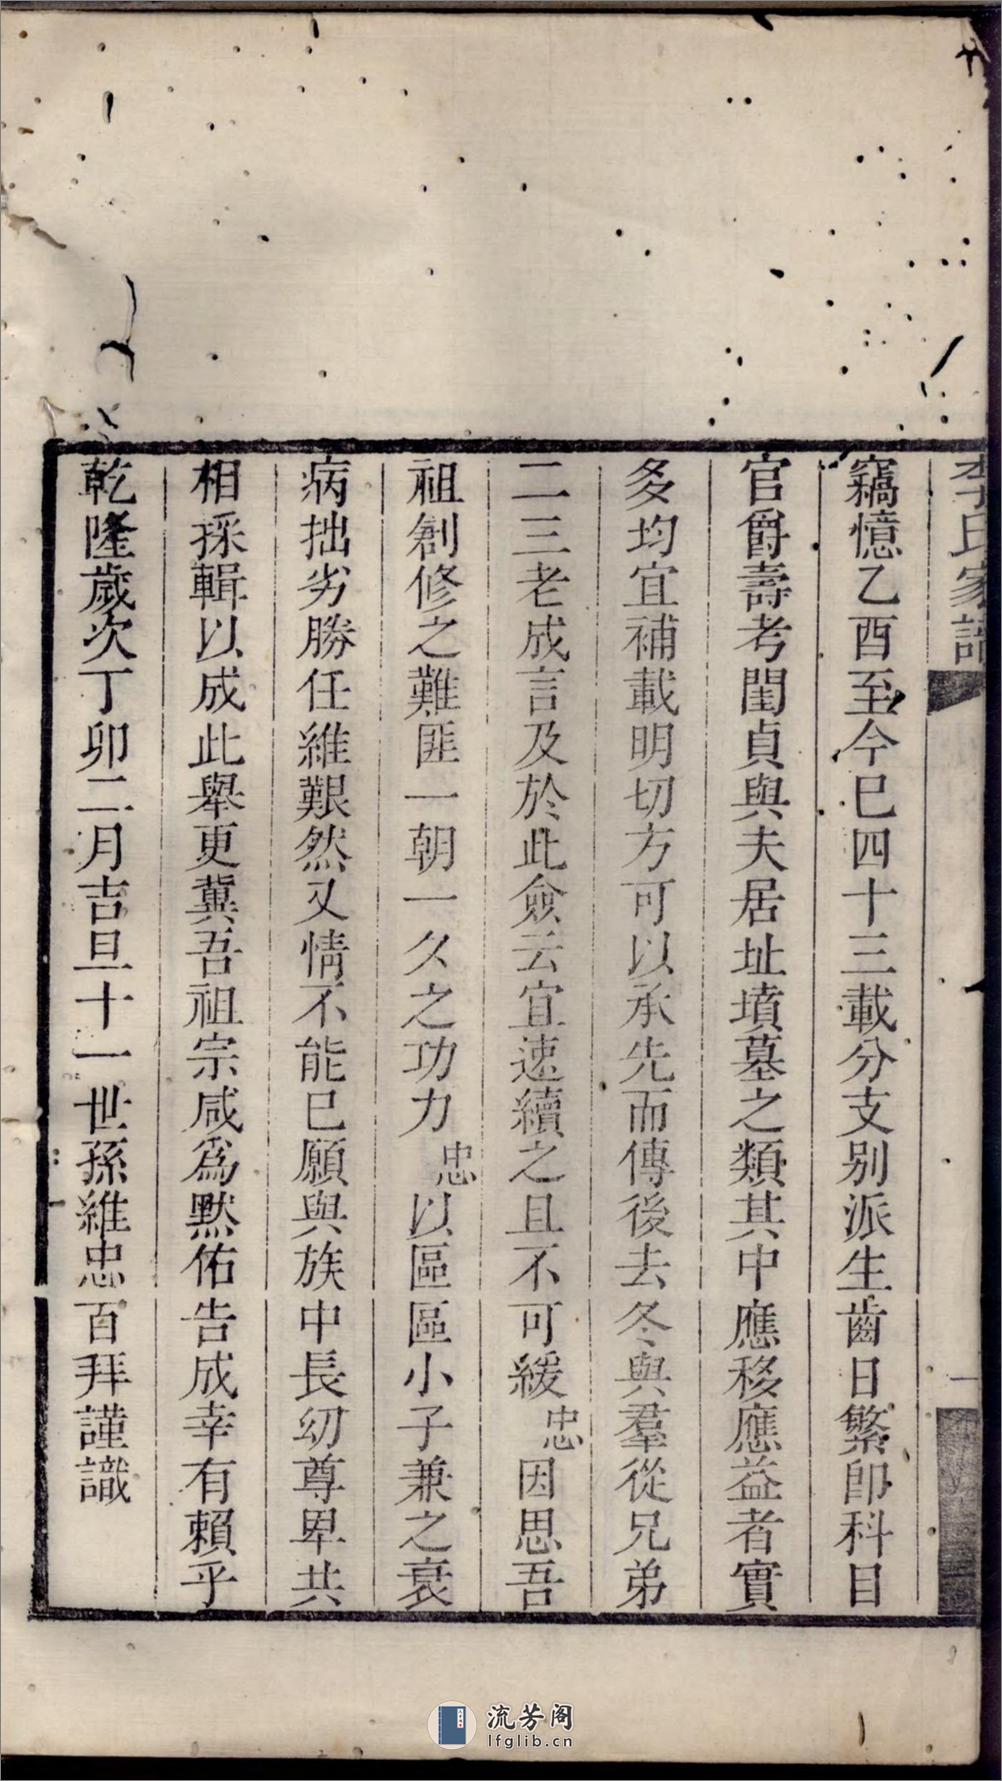 李氏家譜
一
竊憶乙酉至今已四十三載分支別派生齒日繁卽科目
官爵壽考閨貞與夫居址墳墓之類其中應移應益者實
多均宜補載明切方可以承先而傳後去冬與羣從兄弟
二三老成言及於此僉云宜速續之且不可緩忠因思吾
祖創修之難匪一朝一夕之功力忠以區區小子兼之衰
病拙劣勝任維艱然又情不能已願與族中長幼尊卑共
相採輯以成此舉更冀吾祖宗咸爲默佑告成幸有賴乎
乾隆歲次丁卯二月吉旦十一世孫維忠百拜謹識
流芳阁
lfglib.cn